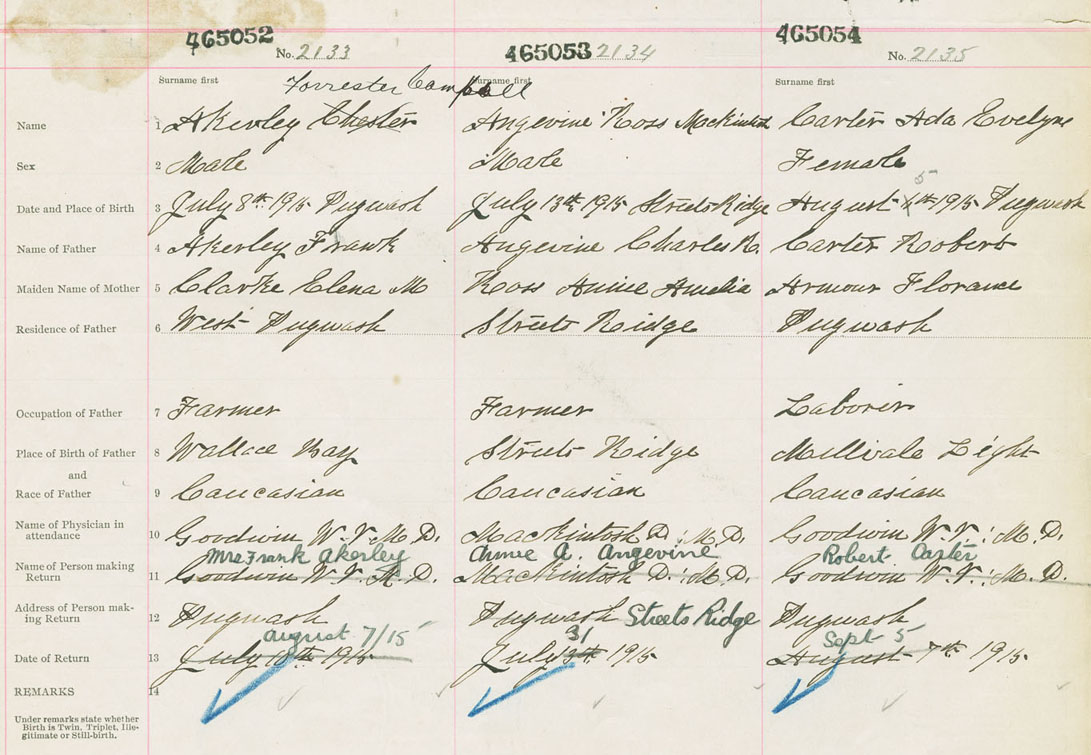 465052 465053 465054
No. 2133 2134 No. 2135
Surname first Surname first Surname first
Forrester Campbell
Name 1 Akerley Chester Angevine Ross Mackintosh Carter Ada Evelyn
Sex 2 Male Male Female
5
Date and Place of Birth 3 July 8th 1915 Pugwash July 13th 1915 Streets Ridge August 4th 1915 Pugwash
Name of Father 4 Akerley Frank Angevine Charles R. Carter Robert
Maiden Name of Mother 5 Clarke Elena M Ross Annie Amelia Armour Florance
Residence of Father 6 West Pugwash Streets Ridge Pugwash
Occupation of Father 7 Farmer Farmer Laborer
Place of Birth of Father 8 Wallace Bay Streets Ridge Millvale
and
Race of Father 9 Caucasian Caucasian Caucasian
Name of Physician in
attendance 10 Goodwin W.V. M.D. Mackintosh D: M.D. Goodwin W.V: M.D.
Mrs Frank Akerley Annie A. Angevine Robert Carter
Name of Person making
Return 11 Goodwin W.V. M.D. Mackintosh D: M.D. Goodwin W.V: M.D.
Address of Person mak-
ing Return 12 Pugwash Pugwash Streets Ridge Pugwash
August 7/15 31 Sept 5
Date of Return 13 July 10th 1915 July 1915 August 7th 1915
REMARKS 14
Under remarks state whether
Birth is Twin, Triplet, Ille-
gitimate or Still-birth.